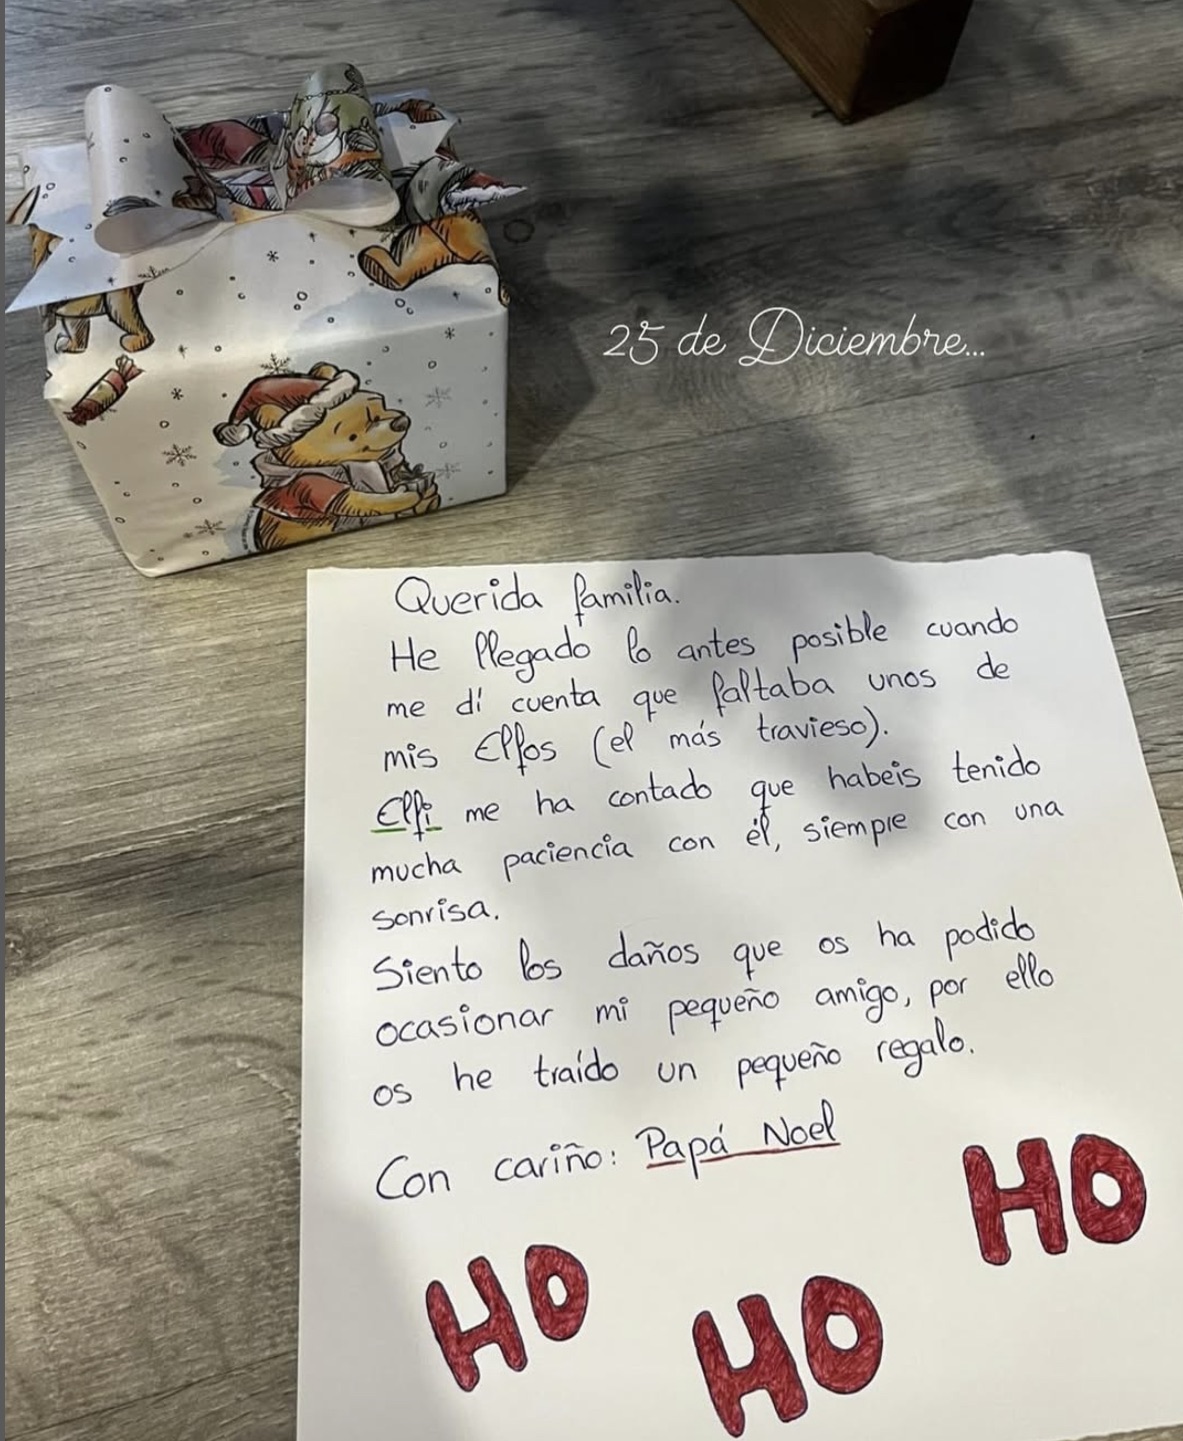 25 de Diciembre...
Querida familia.
He llegado lo antes posible cuando
me dí cuenta que faltaba unos de
mis Elfos (el más travieso).
Elfi me ha contado que habeis tenido
mucha paciencia con él, siempre con una
sonrisa.
Siento los daños que os ha podido
ocasionar mi pequeño amigo, por ello
os he traído un pequeño regalo.
Con cariño: Papá Noel
HO
HO
HO